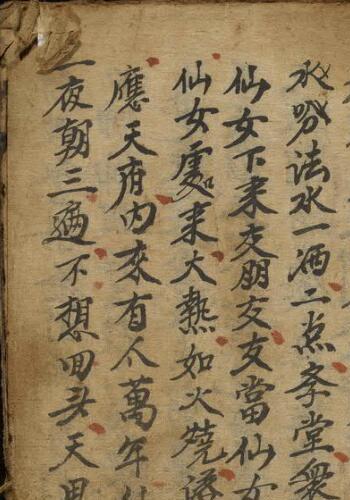 水哪法水一洒二点孝堂衆
仙女下来交朋友友當仙女
仙女處来大熱如火燒
應天府内來有人萬年
一夜朝三遍不想回头天